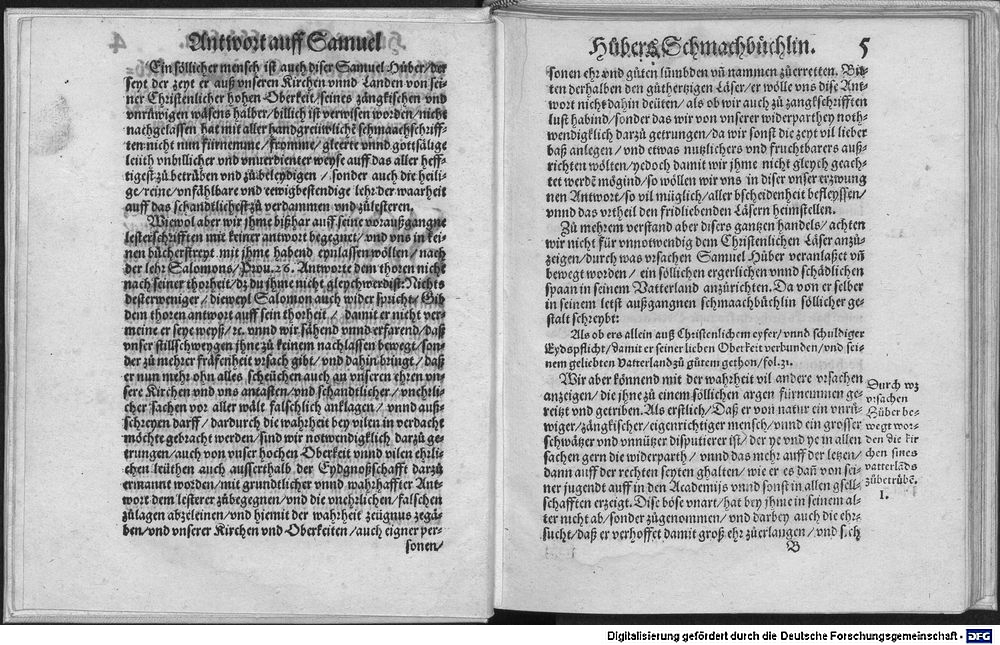 Antwort auff Samuel
Ein söllicher mensch ist auch diser Samuel Hůber/der
seyt der zeyt er auß vnseren Kirchen vnnd Landen von sei-
ner Christenlicher hohen Oberkeit/seines zängkischen vnd
vnrůwigen wäsens halber/billich ist verwisen worden/nicht
nachgelassen hat mit aller handgreiiwlichẽ schmaachschriff-
ten nicht nun fürnemme/fromme/gleerte vnnd gottsälige
leüth vnbillicher vnd vnuerdienter weyse auff das aller heff-
tigest zů betrůben vnd zů beleydigen / sonder auch die heili-
ge/reine/vnfählbare vnd eewigbestendige lehr der waarheit
auff das schandtlichest zů verdammen vnd zůlesteren.
Wiewol aber wir jhme bißhar auff seine vorauß gangne
lesterschrifften mit keiner antwort begegnet/vnd vns in kei-
nen bücherstreyt mit jhme habend eynlassen wöllen/nach
der lehr Salomons/Prou. 26. Antworte dem thoren nicht
nach seiner thorheit/dz du jhme nicht gleych werdist: Nichts
desterweniger/dieweyl Salomon auch wider spricht/Gib
dem thoren antwort auff sein thorheit / damit er nicht ver-
meine er seye weyß/ꝛc. vnnd wir sähend vnnd erfarend/daß
vnser stillschweygen jhne zů keinem nachlassen bewegt/son-
der zů mehrer fräfenheit vrsach gibt/vnd dahin bringt/daß
er nun mehr ohn alles scheüchen auch an vnseren ehren vn-
sere Kirchen vnd vns antasten/vnd schandtlicher/vnehrli-
cher sachen vor aller wält falschlich anklagen/vnnd auß-
schreyen darff/dardurch die wahrheit bey vilen in verdacht
möchte gebracht werden/sind wir notwendigklich darzů ge-
trungen/auch von vnser hochen Oberkeit vnnd vilen ehrli-
chen leüthen auch ausserthalb der Eydgnoßschafft darzů
ermannt worden/mit grundtlicher vnnd wahrhaffter Ant-
wort dem lesterer zůbegegnen/vnd die vnehrlichen/falschen
zůlagen abzeleinen/vnd hiemit der wahrheit zeügnus zegä-
ben/vnd vnserer Kirchen vnd Oberkeiten/auch eigner per-
sonen/
Hůbers Schmachbüchlin. 5
sonen ehr vnd gůten lümbden vñ nammen zůerretten. Bit-
ten derhalben den gůtherzigen Läser/er wölle vns dise Ant-
wort nicht dahin deüten/als ob wir auch zů zangkschrifften
lust habind/sonder das wir von vnserer widerparthey noth-
wendigklich darzů getrungen/da wir sonst die zeyt vil lieber
baß anlegen/vnd etwas nutzlichers vnd fruchtbarers auß-
richten wölten/yedoch damit wir jhme nicht gleych geach-
tet werdẽ mögind/so wöllen wir vns in diser vnser erzwung
nen Antwort/so vil müglich/aller bscheidenheit befleyssen/
vnnd das vrtheil den fridliebenden Läsern heimstellen.
Zů mehrem verstand aber disers gantzen handels/achten
wir nicht für vnnotwendig dem Christenlichen Läser anzů-
zeigen/durch was vrsachen Samuel Hůber veranlaßet vñ
bewegt worden / ein söllichen ergerlichen vnnd schädlichen
spaan in seinem Vatterland anzůrichten. Da von er selber
in seinem letst außgangnen schmaachbüchlin söllicher ge-
stalt schreybt:
Als ob ers allein auß Christenlichem eyfer/vnnd schuldiger
Eydspflicht/damit er seiner lieben Oberkeit verbunden/vnd sei-
nem geliebten Vatterland zů gůtem gethon/fol. 21.
Wir aber könnend mit der wahrheit vil andere vrsachen
anzeigen/die jhne zů einem söllichen argen fürnemmen ge-
reitzt vnd getriben. Als erstlich/Daß er von natur ein vnrů-
wiger/zängkischer/eigenrichtiger mensch/vnnd ein grosser
schwätzer vnd vnnützer disputierer ist/der ye vnd ye in allen
sachen gern die widerparth / vnnd das mehr auff der letzen/
dann auff der rechten seyten ghalten/wie er es dañ von sei-
ner jugendt auff in den Academijs vnnd sonst in allen gsell-
schafften erzeigt. Dise böse vnart/hat bey jhme in seinem al-
ter nicht ab/sonder zůgenommen/vnd darbey auch die ehr-
sucht/daß er verhoffet damit groß ehr zůerlangen/vnd sich
B
Durch wz
vrsachen
Hůber be-
wegt wor-
den die kir
chen sines
vatterlãds
zůbetrůbẽ.
I.
Digitalisierung gefördert durch die Deutsche Forschungsgemeinschaft - DFG